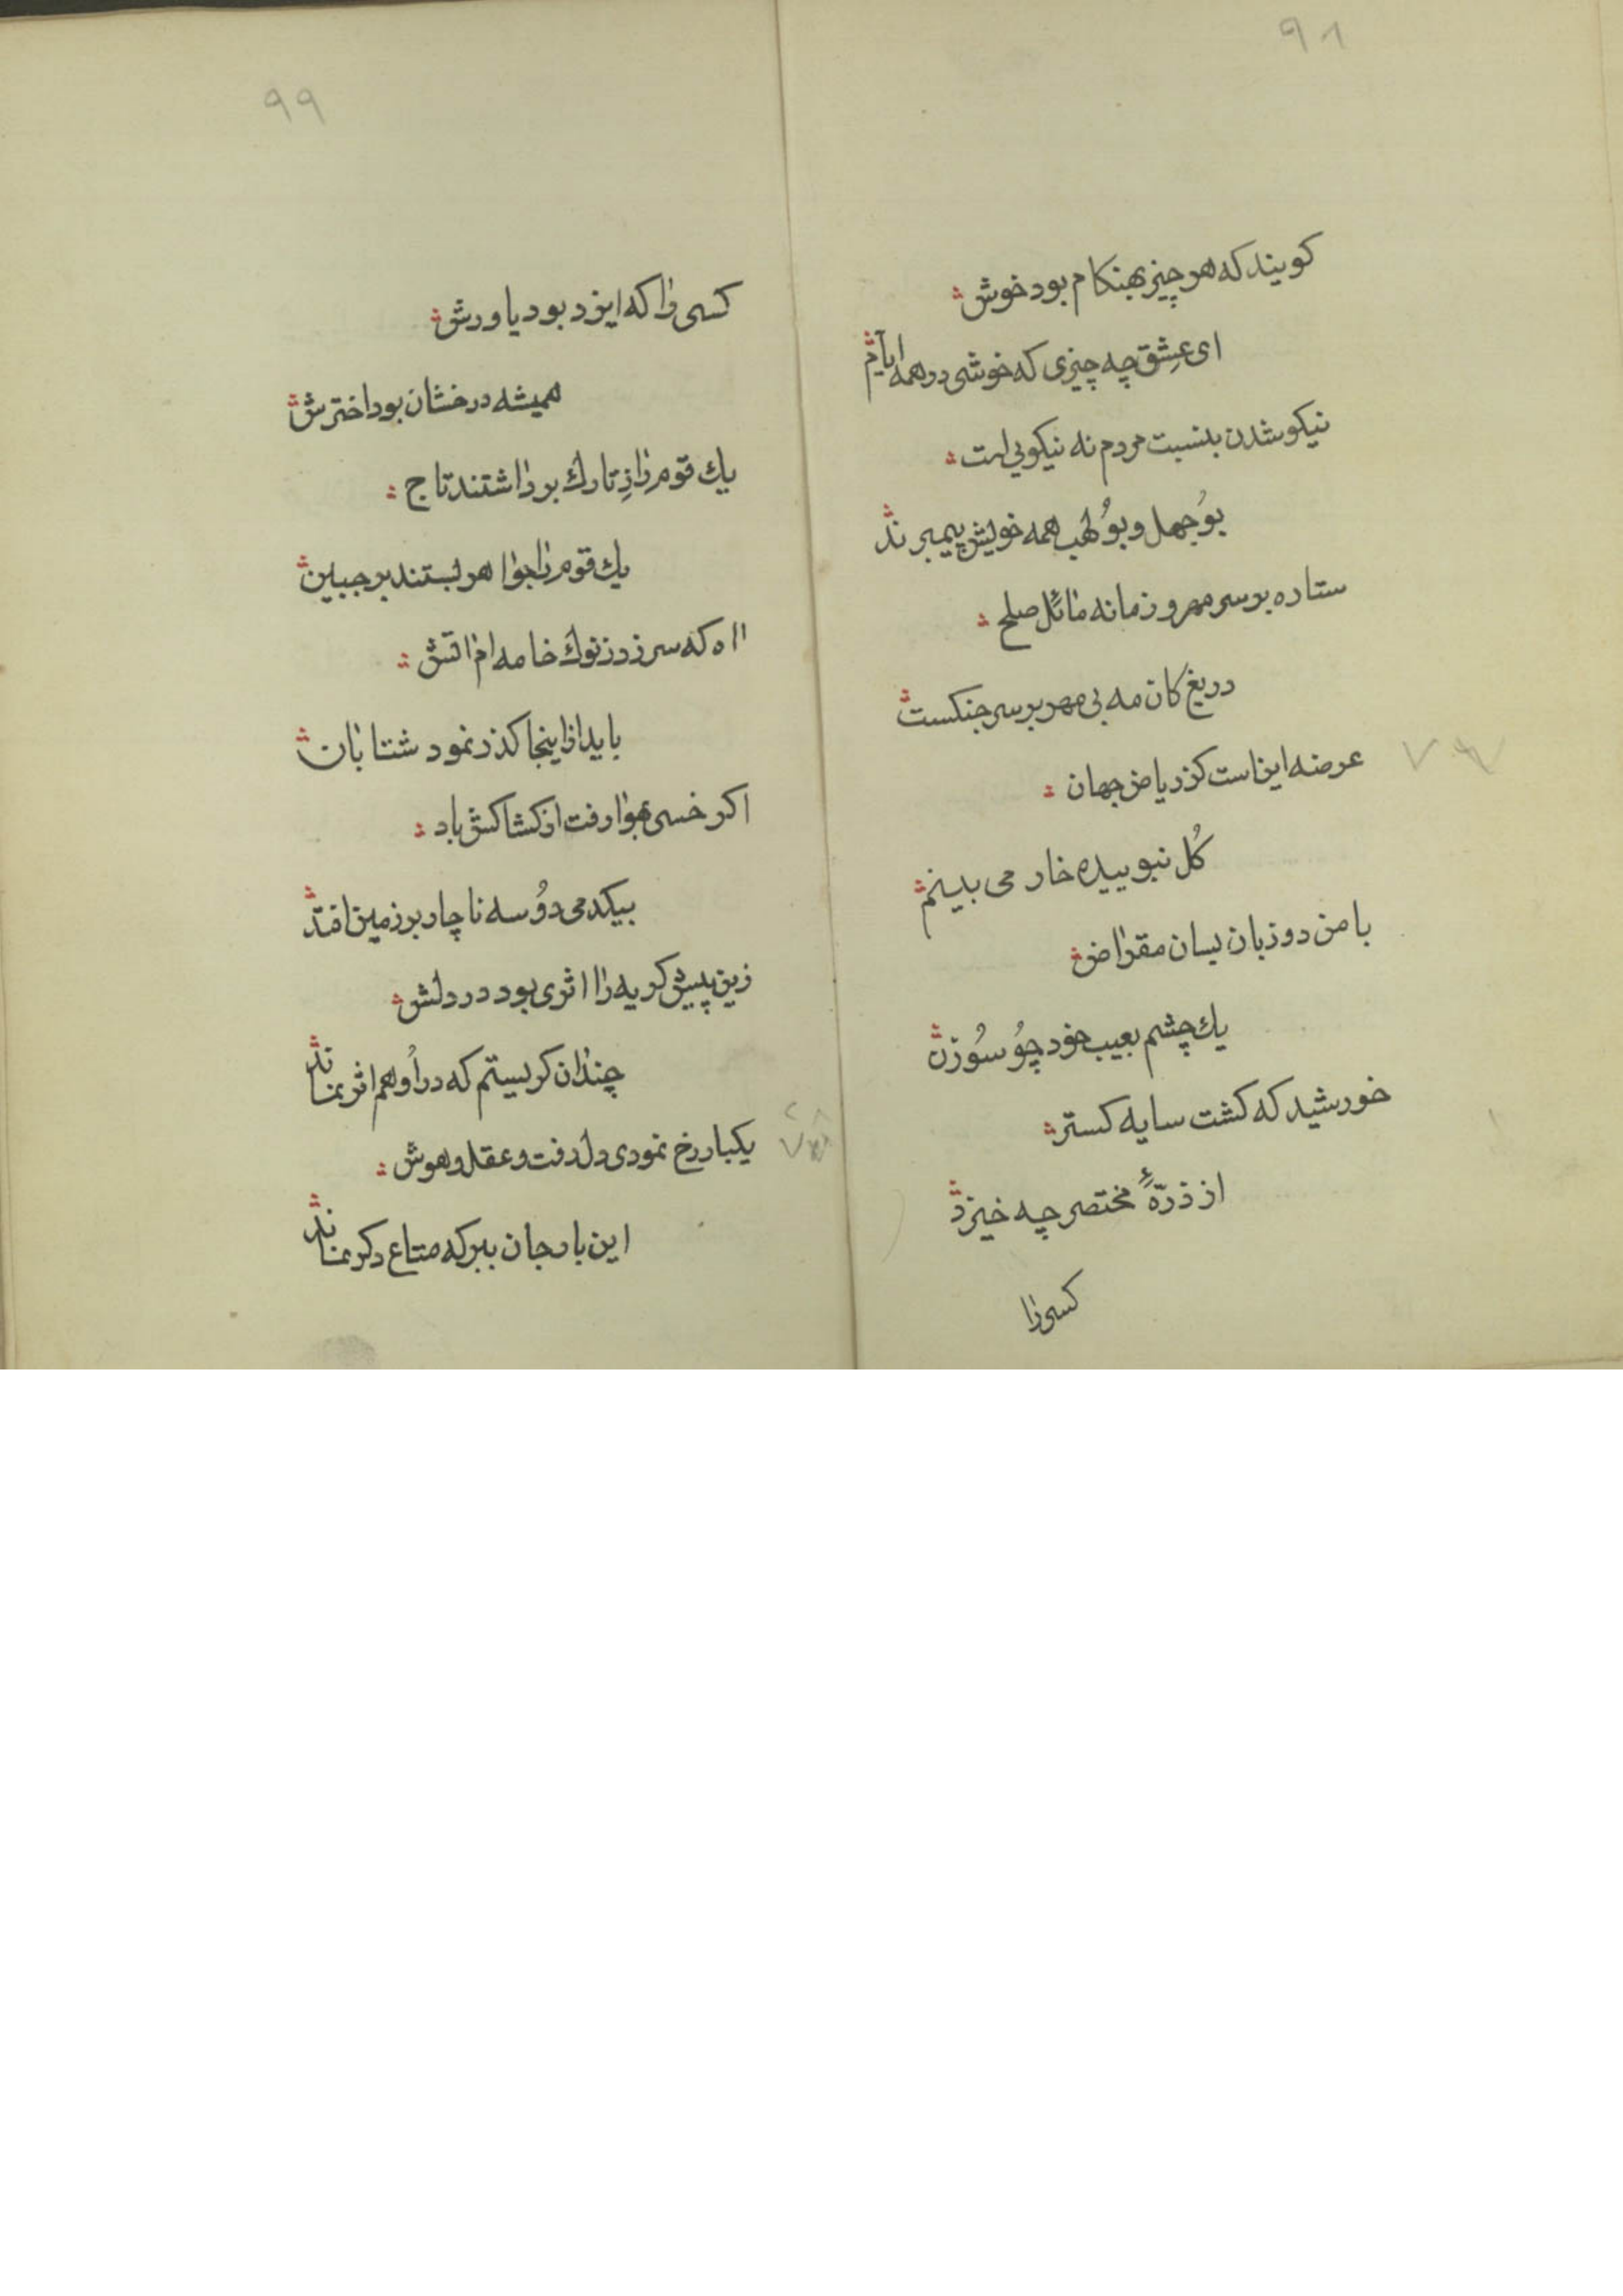 ٩٨
کویند که هر چیز بهنکام بود خوش
ای عِشق چه چیزی که خوشی در همه ایّام
نیکو شدن بنسبت مردم نه نیکویی است
بوُجهل و بوُلهب همه خویش پیمبرند
ستاره بر سر مهر و زمانه مائل صلح
دریغ کان مه بی مهر بر سر جنکست
عرضه این است کز ریاض جهان
کُل نبوییده خار می بینم
با من دو زبان بسان مقراض
یك چشم بعیب خود چوُ سوُزن
خورشید که کشت سایه کستر
از ذرّهٔ مختصر چه خیزد
کسی را
٩٩
کسی را که ایزد بود یاورش
همیشه درخشان بود اخترش
یك قوم را زِ تارك برداشتند تاج
یك قوم را جواهر بستند بر جبین
ااه که سر زد ز نوك خامه ام ااتش
باید از اینجا کذر نمود شتابان
اکر خسی بهوا رفت از کشاکش باد
بیکدمی دوُ سه ناچار بر زمین افتد
زین پیش کریه را اثری بود در دلش
چندان کریستم که در اُو هم اثر نماند
یکبار رخ نمودی دل رفت و عقل و هوش
این بار جان ببر که متاع دکر نماند